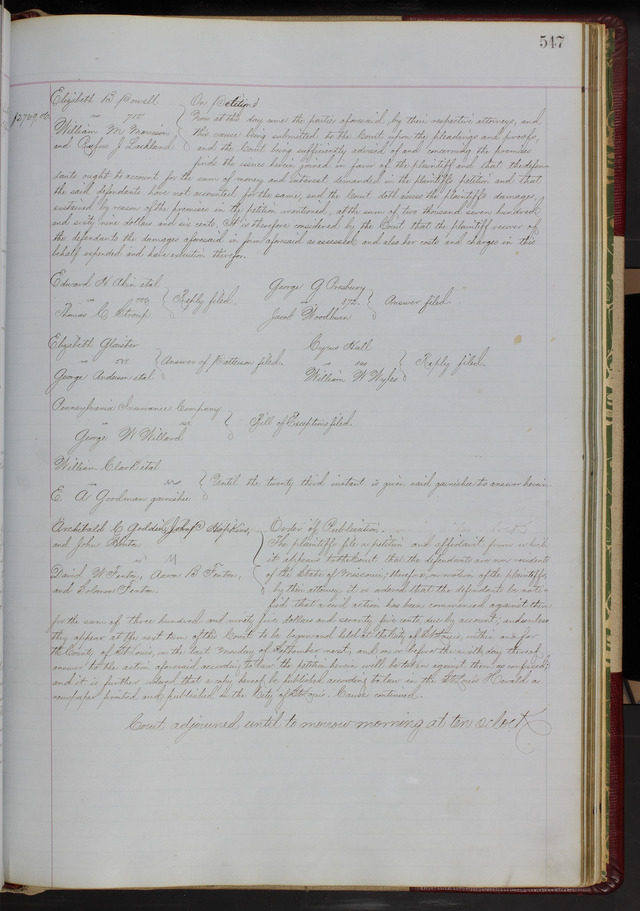 547
Elizabeth B Powell
On Petition
$2769.06
" 715
Now at this day come the parties aforesaid, by their respective attorneys, and
William M Morrison
this cause being submitted to the Court upon the pleadings and proofs,
and Rufus J Lackland
and the Court being sufficiently advised of and concerning the premises
finds the issues herein joined in favor of the plaintiff and that the defen-
dants ought to account for the sum of money and interest demanded in the plaintiffs petition and that
the said defendants have not accounted for the same, and the Court doth assess the plaintiffs damages
sustained by reason of the premises in the petition mentioned, at the sum of two thousand seven hundred
and sixty nine dollars and six cents. It is therefore considered by the Court that the plaintiff recover of
the defendants the damages aforesaid in form aforesaid as assessed, and also her costs and charges in this
behalf expended and have execution therefor.
Edward H et al
Reply filed.
Thomas C Stroup
George G Presbury
Answer filed
Jacob Woodburn
Elizabeth Glaister
Answer of Patterson filed.
George Anderson et al
Cyrus Hall
Reply filed.
William W Wyles
Pennsylvania Insurance Company
Bill of Exceptions filed.
George W Willard
William Clark et al
Until the twenty third instant is given said garnishee to answer herein
E A Goodman garnishee
Archibald C Goddin, John C Hopkins,
Order of Publication.
and John
The plaintiffs file a petition and affidavit from which
it appears to the Court that the defendants are non residents
David W Fenton, Aaron B Fenton,
of the State of Missouri; therefore, on motion of the plaintiffs
and Solomon Fenton.
by their attorney it is ordered that the defendants be noti-
fied that a civil action has been commenced against them
for the sum of three hundred and ninety five dollars and seventy five cents due by account; and unless
they appear at the next term of this Court to be begun and held at the City of St Louis, within and for
the County of St Louis, on the last Monday of September next, and on or before the sixth day thereof,
answer to the action aforesaid according to law the petition herein will be taken against them as confessed;
and it is further ordered that a copy hereof be published according to law in the St Louis Herald a
newspaper printed and published in the City of St Louis. Cause continued.
Court adjourned until to morrow morning at ten o'clock